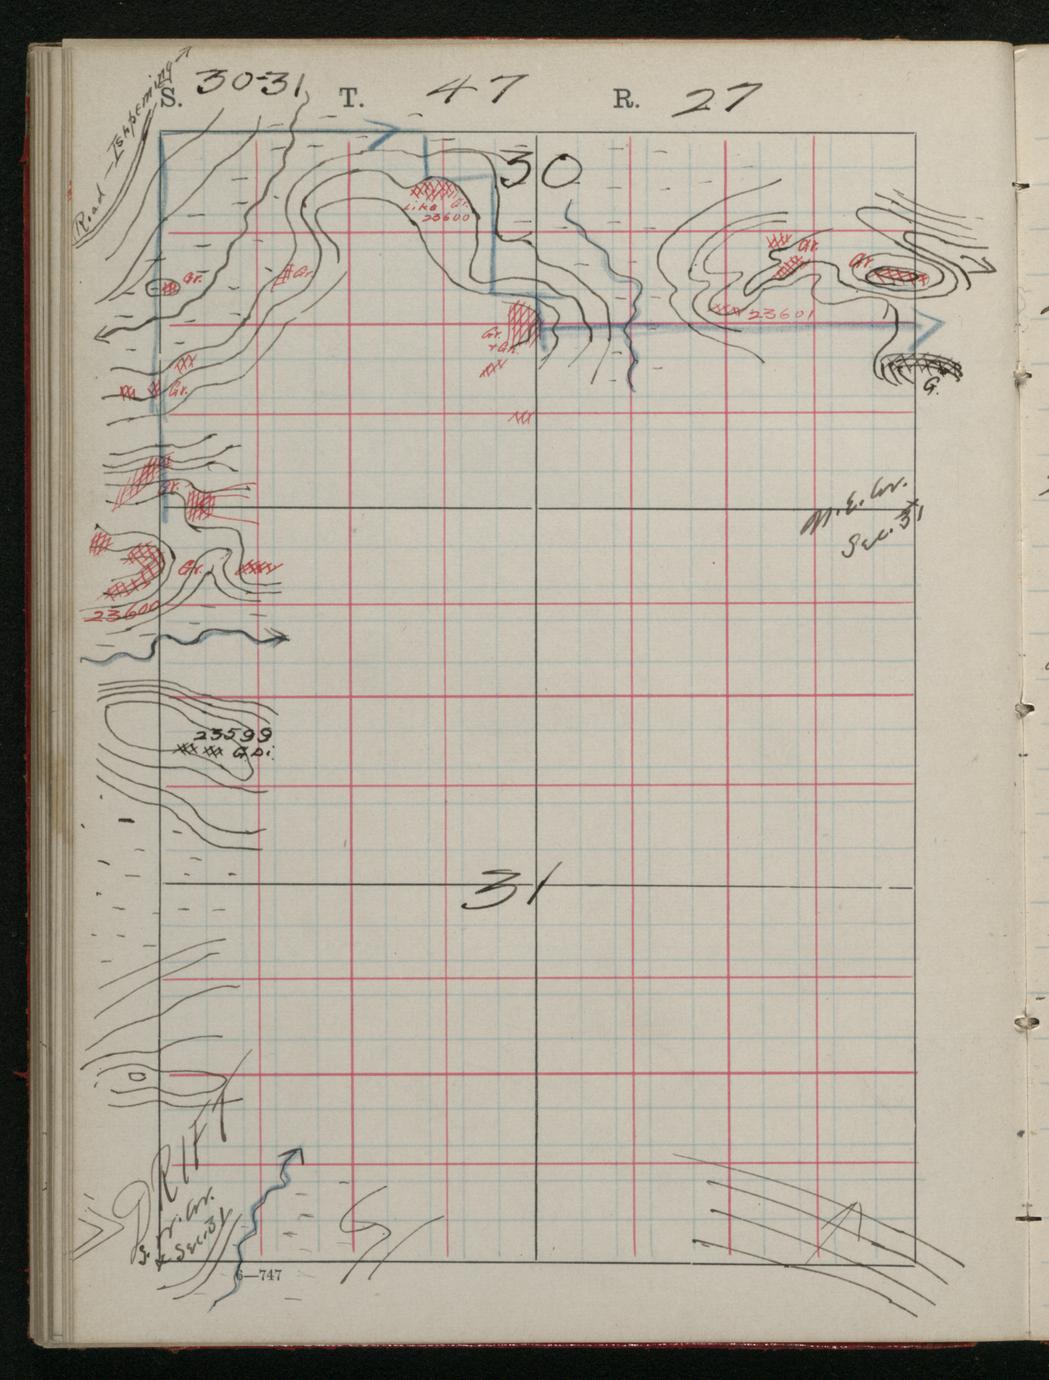 Road - Ishpeming
S. 30-31 T. 47 R. 27
30
Like Gr.
23600
Gr.
Gr.
Gr.
Gr.
Gr.
23601
Gr.
+ Gn.
Gr.
G.
Gr.
N.E. Cor.
Sec. 31
Gr.
23600
23599
G Di.
31
DRIFT
S.W. Cor.
Sec. 31
6—747